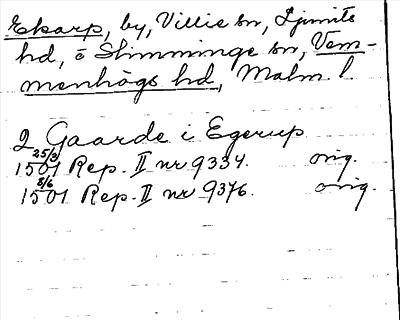 Ekarp, by, Villie sn, Ljunits
hd, ö Slimminge sn, Vem-
menhögs hd, Malm. l.
2 Gaarde i Egerup
1501 25/3 Rep. II nr 9334. orig.
1501 8/6 Rep. II nr 9376. orig.